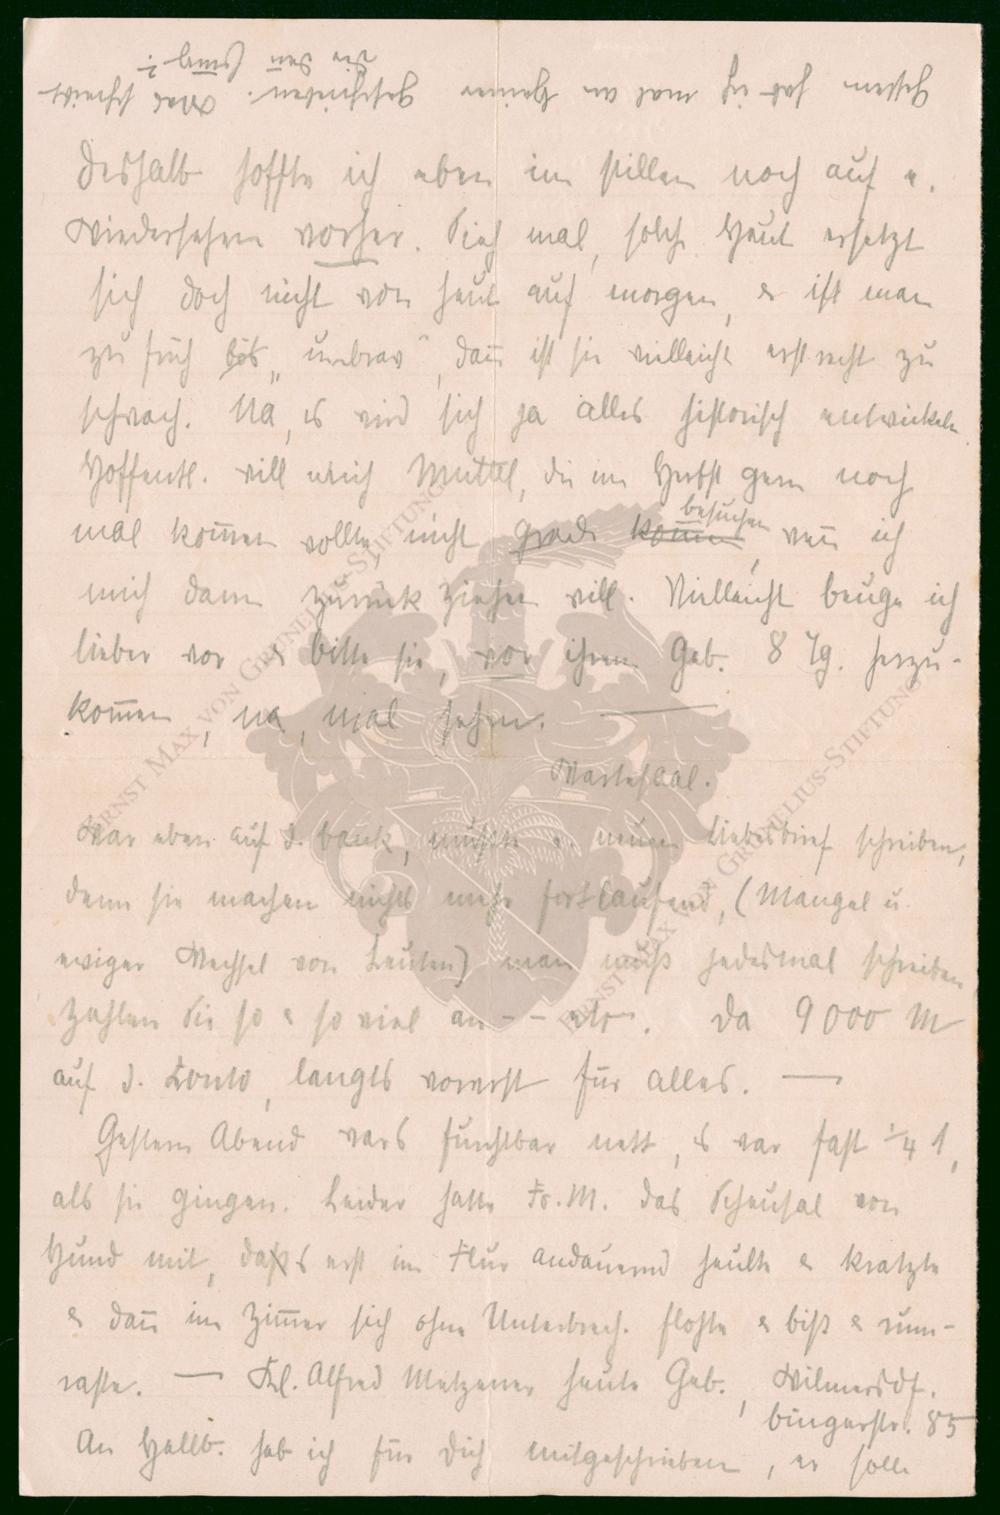 Gestern hab ich mal an Heiner geschrieben. Was schreibt
die den
deshalb hoffte ich eben im stillen noch auf e.
Wiedersehen vorher. Sieh mal, solch Haut ersetzt
sich doch nicht von heut auf morgen, & ist man
zu früh bös „unbrav“, dann ist sie vielleicht erst recht zu
schwach. Na, es wird sich ja alles historisch entwickeln.
Hoffentl. will mich Muttel, die im Herbst gern noch
mal kom̅en wollte, nicht grade kom̅en besuchen, wen̅ ich
mich dann zurück ziehen will. Vielleicht beuge ich
lieber vor & bitte sie, vor ihrem Geb. 8 Tg. herzu-
kom̅en, na, mal sehen. —
Wartesaal.
War eben auf d. Bank, mußte e. neuen Liebesbrief schreiben,
denn sie machen nichts mehr fortlaufend, (Mangel u.
ewiger Wechsel von Leuten) man muß jedesmal schreiben
Zahlen Sie so & so viel an - - etc. Da 9000 M
auf d. Konto, langts vorerst für alles. —
Gestern Abend wars furchtbar nett, es war fast ¼ 1,
als sie gingen. Leider hatte Fr. M. das Scheusal von
Hund mit, das erst im Flur andauernd heulte & kratzte
& dan̅ im Zim̅er sich ohne Unterbrech. flohte & biß & rum-
raste. — Frl. Alfred Metzener heute Geb., Wilmersdf.
Bingerstr. 85
An Hallb. hab ich für Dich mitgeschrieben, er solle